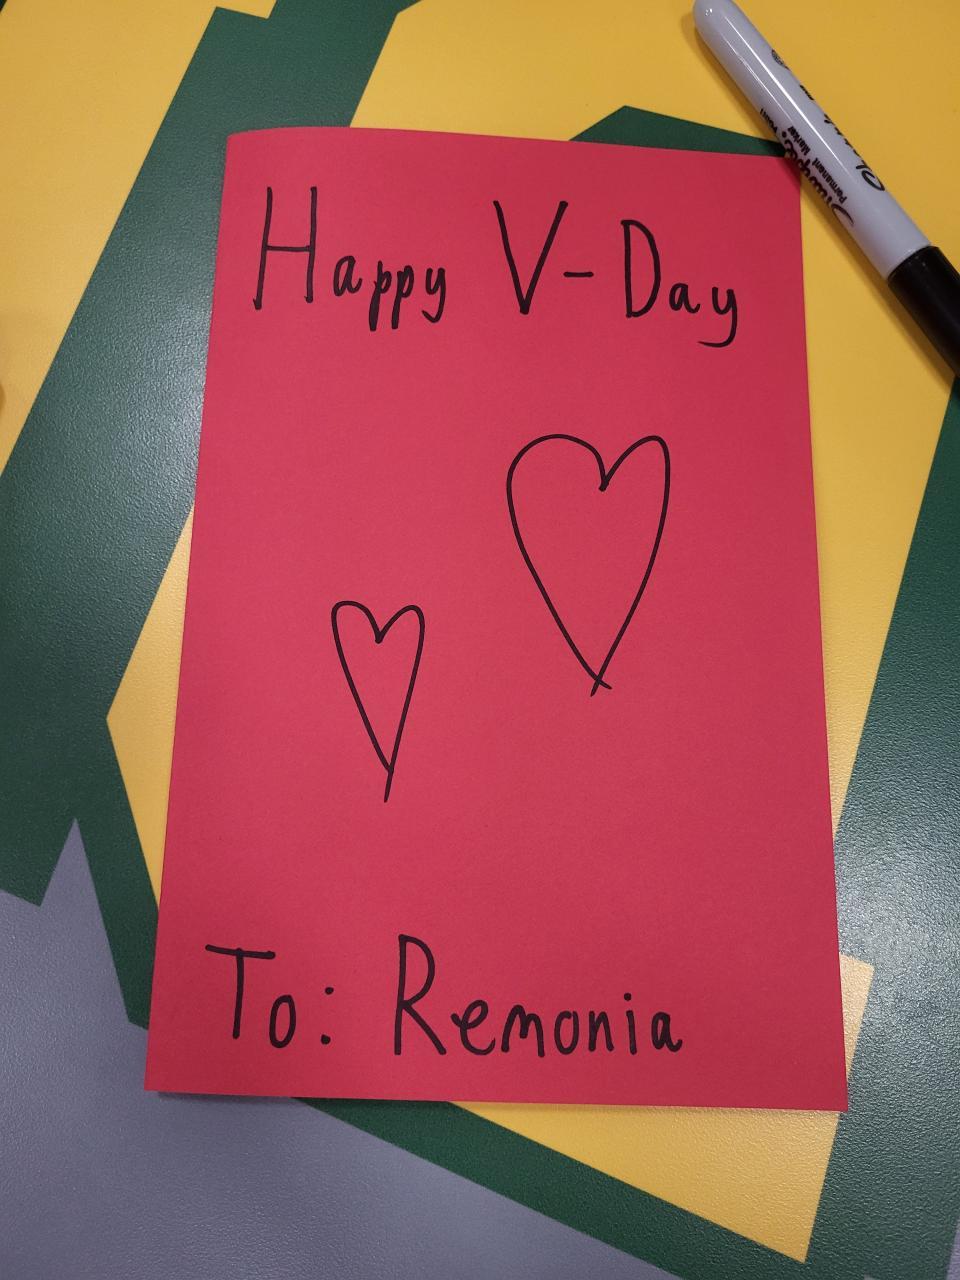 Happy V-Day
To: Remonia
Sharpie.
Permanent Marker